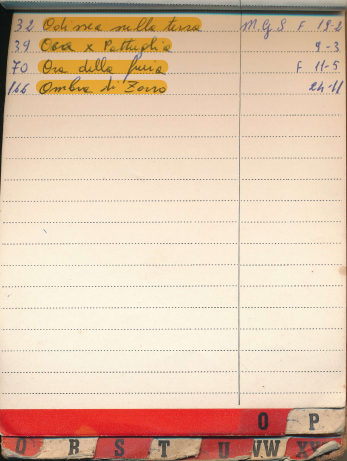 32 Odissea sulla terra M.G.S F 19-2
39 Ora x Pattuglia 9-3
70 Ora della furia F 11-5
166 Ombra di Zorro 24-11
O P
Q R S T U VW XY